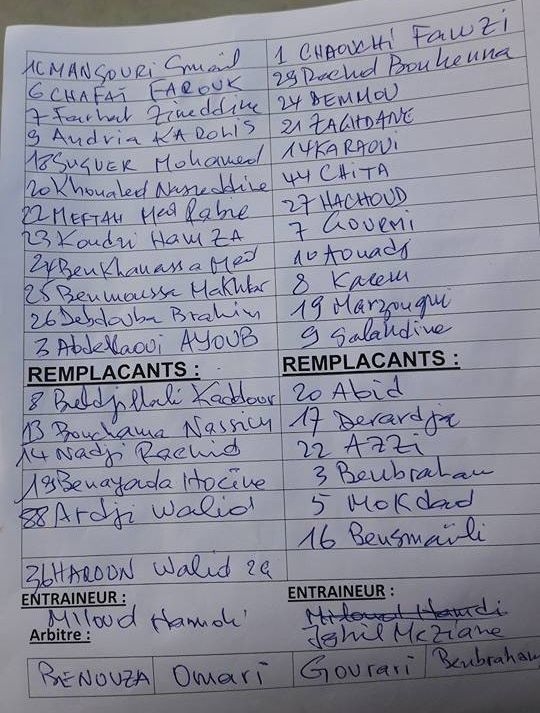 1 MANSOURI Smail
1 CHAOUCHI FAWZI
6 CHAFAÏ FAROUK
29 Rachid Bouhenna
7 Farhat Zineddine
24 DEMMOU
9 Andria KAROLIS
21 ZAGHDANE
18 SUGUER Mohamed
14 KARAOUI
20 Khoualed Nasreddine
44 CHITA
22 MEFTAH Med Rabie
27 HACHOUD
23 Koudri HAMZA
7 GOURMI
24 Benkhamassa Med
10 Aouadj
25 Benmoussa Mokhtar
8 Karem
26 Debdouba Brahim
19 Marzougui
3 Abdellaoui AYOUB
9 Salahdine
REMPLACANTS :
REMPLACANTS :
8 Beldjillali Kaddour
20 Abid
13 Bouchama Nassim
17 Derardja
14 Nadji Rachid
22 AZZI
19 Benayada Hocine
3 Benbraham
88 Ardji Walid
5 MoKdad
16 Bensmaïli
36 HAROON Walid 29
ENTRAINEUR :
ENTRAINEUR :
Miloud Hamdi
Miloud Hamdi
Ighil Meziane
Arbitre :
BENOUZA
Omari
Gourari
Benbraham